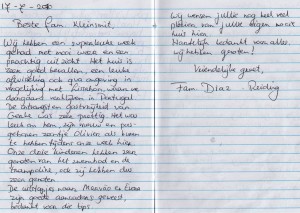 17-7-2010
Beste Fam. Kleinsmit,
Wij hebben een superleuke week
gehad met mooi weer en een
prachtig uitzicht. Het huis is
zeer goed bevallen, een leuke
afwisseling ook qua omgeving in
vergelijking met Lissabon, waar we
doorgaans verblijven in Portugal
De ontvangst en gastvrijheid van
Gerda was zeer prettig. Het was
leuk om hem, zijn vrouw en pas-
geboren zoontje Olivier als buren
te hebben tijdens onze week hier.
Onze drie kinderen hebben zeer
genoten van het zwembad en de
trampoline, ook zij hebben dus
zeer genoten
De uitstapjes waren
zijn goede aanraders geweest,
bedankt voor de tips
Wij wensen jullie nog heel veel
plezier van jullie eigen
huis hier
Hartelijk bedankt voor alles.
wij hebben genoten!
Vriendelijke groet,
Fam. Diaz Reiding